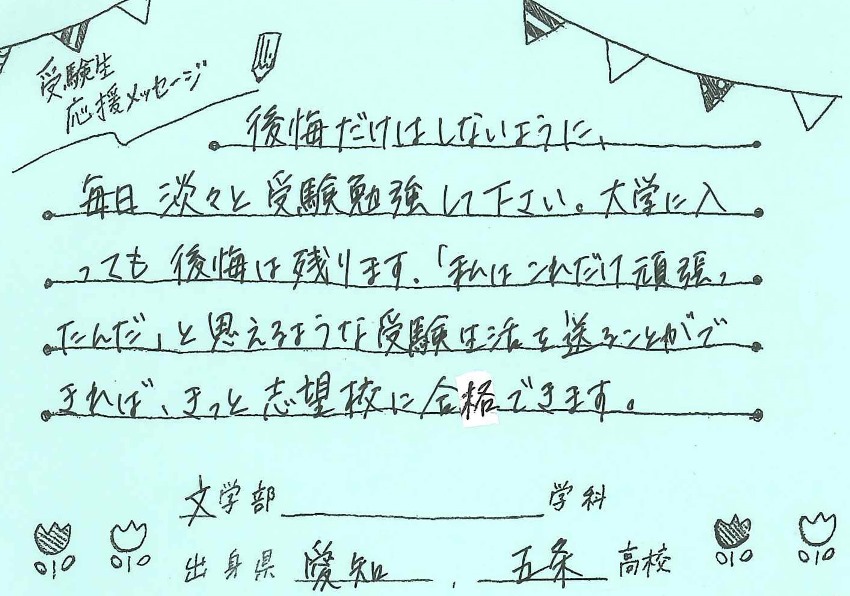 受験生
応援メッセージ
後悔だけはしないように、
毎日淡々と受験勉強して下さい。大学に入
っても後悔は残ります。「私はこれだけ頑張っ
たんだ」と思えるような受験生活を送ることがで
きれば、きっと志望校に合格できます。
文学部 学科
出身県 愛知 . 五条 高校